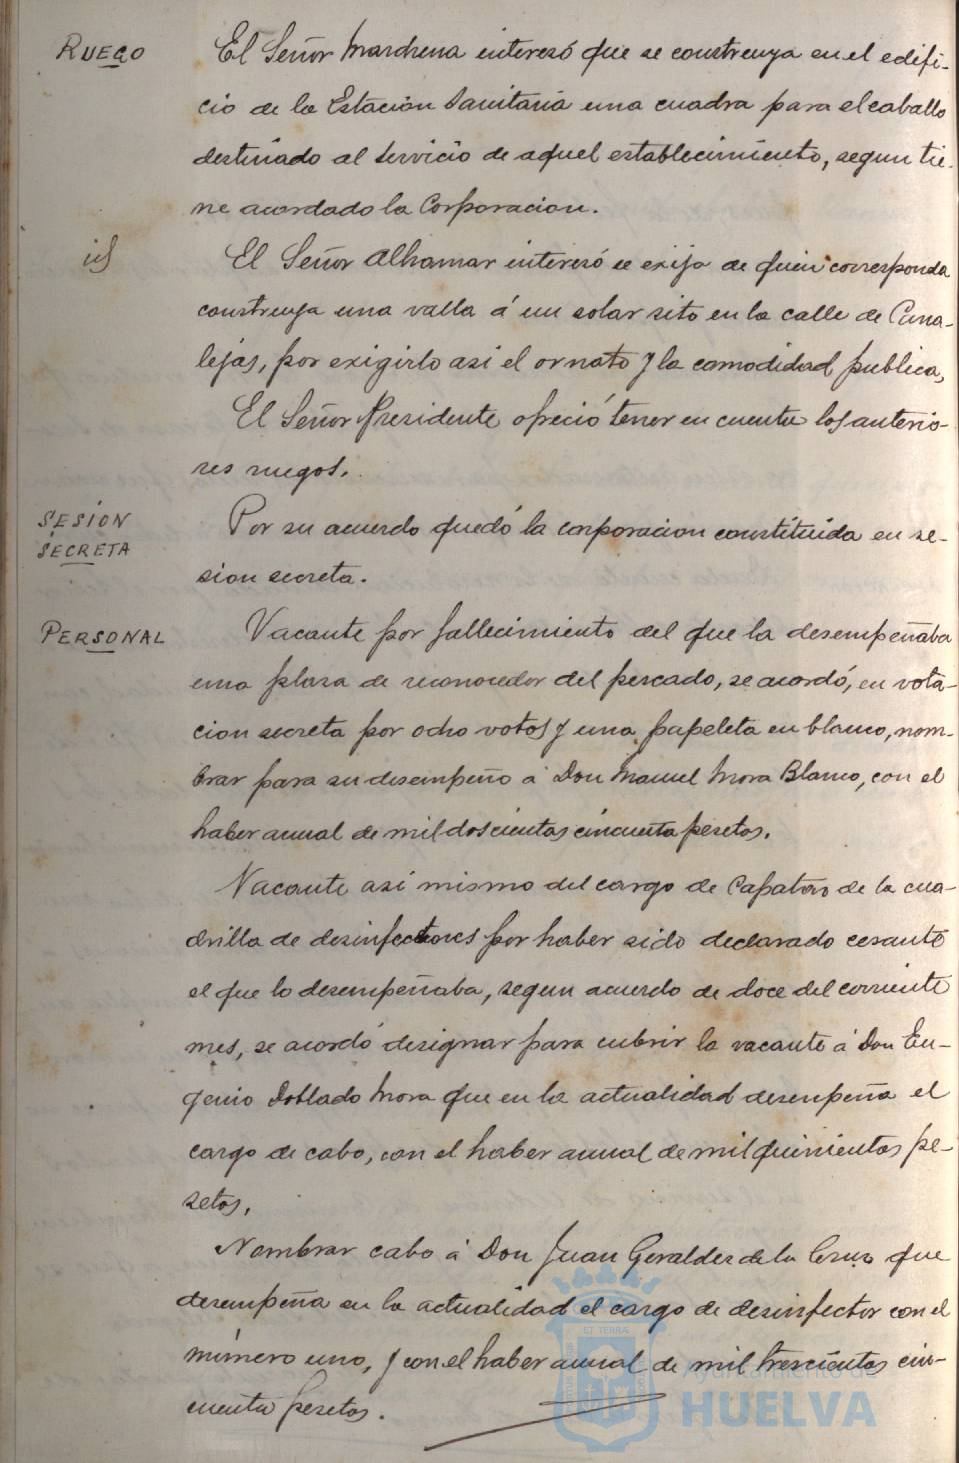 RUEGO
El Señor Marchena interesó que se construya en el edifi-
cio de la Estación Sanitaria una cuadra para el caballo
destinado al servicio de aquel establecimiento, segun tie-
ne acordado la Corporacion.
id
El Señor Alhamar interesó se exija de quien corresponda
construya una valla á un solar sito en la calle de Cana-
lejas, por exigirlo asi el ornato y la comodidad publica,
El Señor Presidente ofreció tener en cuenta los anterio-
res ruegos.
SESION
SECRETA
Por su acuerdo quedó la corporacion constituida en se-
sion secreta.
PERSONAL
Vacante por fallecimiento del que la desempeñaba
una plaza de reconocedor del pescado, se acordó, en vota-
cion secreta por ocho votos y una papeleta en blanco, nom-
brar para su desempeño á Don Manuel Mora Blanco, con el
haber anual de mil doscientas cincuenta pesetas.
Vacante asi mismo del cargo de Capataz de la cua-
drilla de desinfectores por haber sido declarado cesante
el que lo desempeñaba, segun acuerdo de doce del corriente
mes, se acordó designar para cubrir la vacante á Don Eu-
genio Doblado Mora que en la actualidad desempeña el
cargo de cabo, con el haber anual de mil quinientas pe-
setas.
Nombrar cabo á Don Juan Geraldes de la Cruz que
desempeña en la actualidad el cargo de desinfector con el
número uno, y con el haber anual de mil trescientas cin-
cuenta pesetas.
Ayuntamiento de
HUELVA